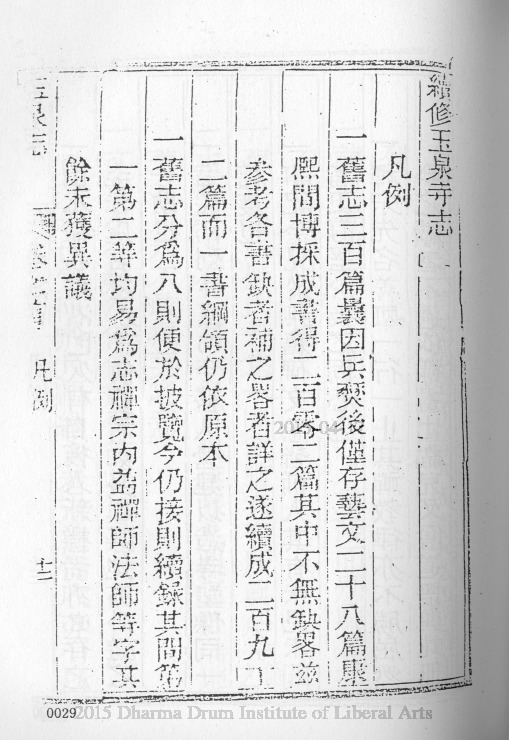 續修玉泉寺志
凡例
一舊志三百篇曩因兵燹後僅存藝文二十八篇康
熙間博採成書得二百零二篇其中不無缺畧茲
參考各書缺者補之畧者詳之遂續成二百九十
二篇而一書綱領仍依原本
一舊志分爲八則便於披覽今仍接則續錄其間第
一第二等均易爲志禪宗內益禪師法師等字其
餘未獲異議
玉泉志
卷之首
凡例
十二
0029
2015 Dharma Drum Institute of Liberal Arts